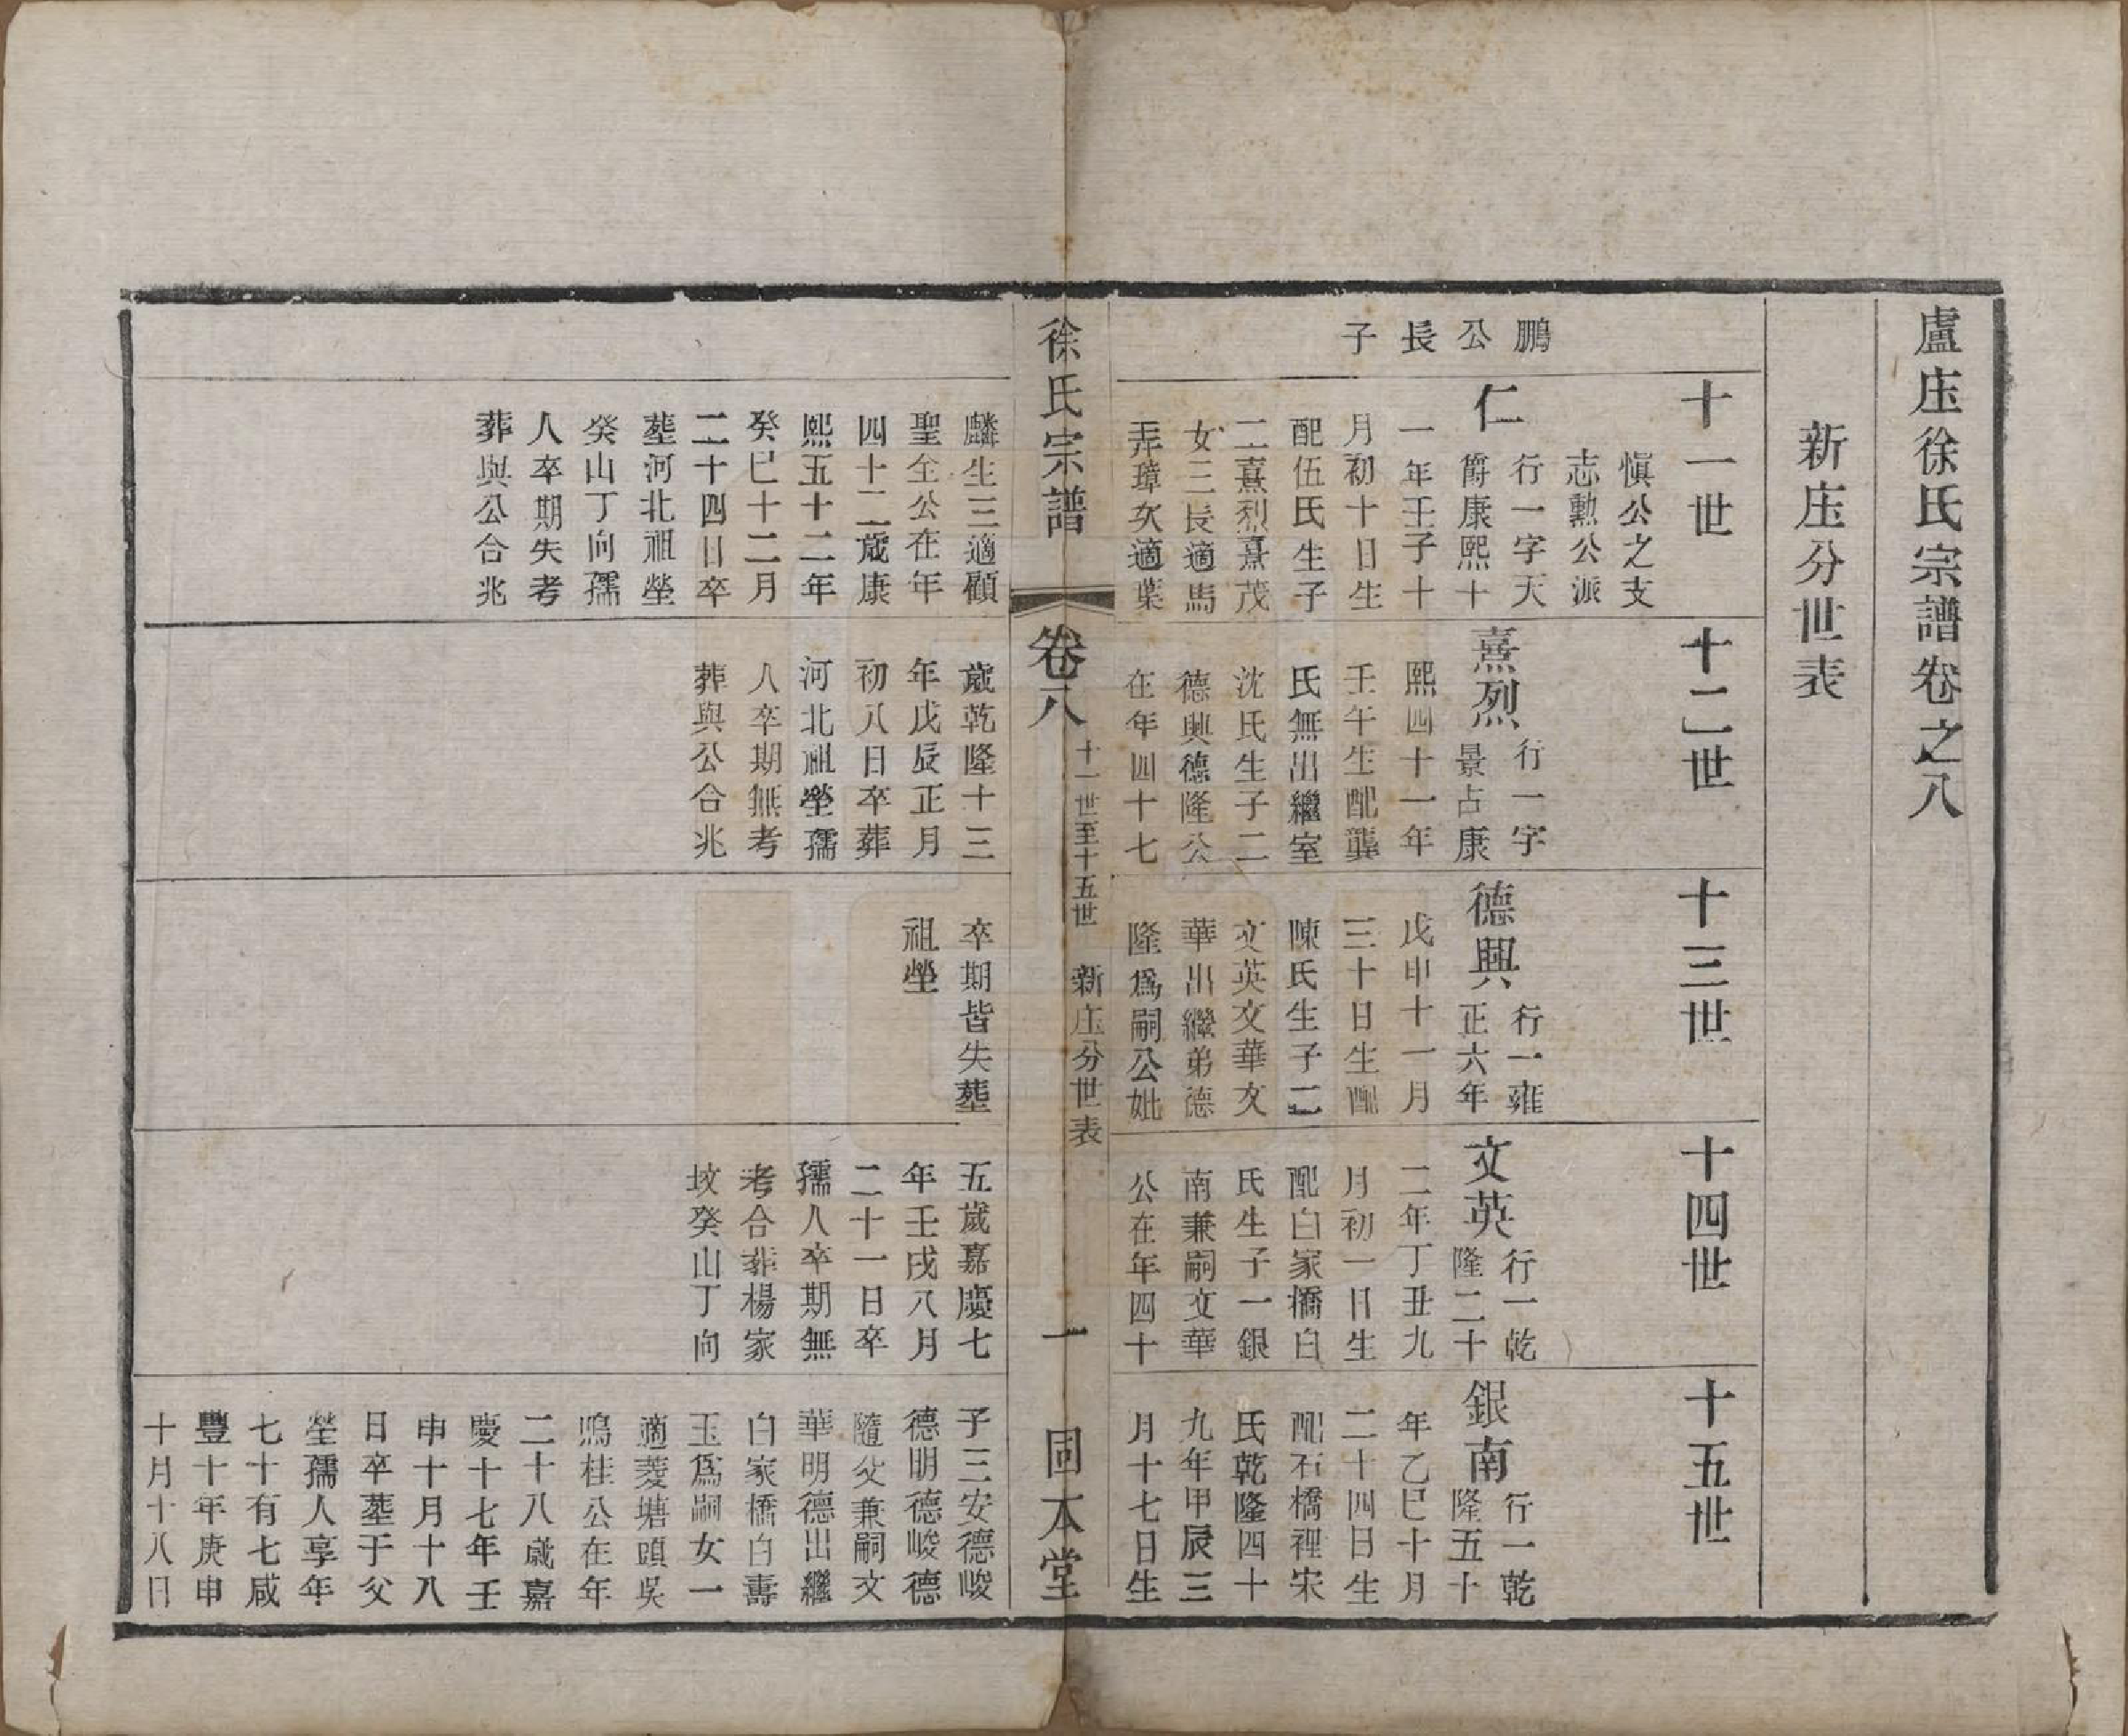 盧庄徐氏宗譜卷之八
新庄分世表
十一世
十二世
十三世
十四世
十五世
鵬
公
長
子
慎公之支
志勲公派
仁
行一字天
爵康熙十
一年壬子十
月初十日生
配伍氏生子
二熹烈熹茂
女三長適馬
弄璋次適葉
熹烈
行一字
景占康
熙四十一年
壬午生配龔
氏無出繼室
沈氏生子二
德興德隆公
在年四十七
德興
行一雍
正六年
戊申十一月
三十日生配
陳氏生子二
文英文華文
華出繼弟德
隆爲嗣公妣
文英
行一乾
隆二十
二年丁丑九
月初一日生
配白家橋白
氏生子一銀
南兼嗣文華
公在年四十
銀南
行一乾
隆五十
年乙巳十月
二十四日生
配石橋裡宋
氏乾隆四十
九年甲辰三
月十七日生
徐氏宗譜
卷八
十一世至十五世
新庄分世表
一
固本堂
麟生三適顧
聖全公在年
四十二歲康
熙五十二年
癸巳十二月
二十四日卒
塟河北祖塋
癸山丁向孺
人卒期失考
葬與公合兆
歲乾隆十三
年戊辰正月
初八日卒葬
河北祖塋孺
人卒期無考
葬與公合兆
卒期皆失塟
祖塋
五歲嘉慶七
年壬戌八月
二十一日卒
孺人卒期無
考合葬楊家
坟癸山丁向
子三安德峻
德明德峻德
隨父兼嗣文
華明德出繼
白家橋白壽
玉爲嗣女一
適菱塘頭吳
鳴桂公在年
二十八歲嘉
慶十七年壬
申十月十八
日卒塟于父
塋孺人享年
七十有七咸
豐十年庚申
十月十八日